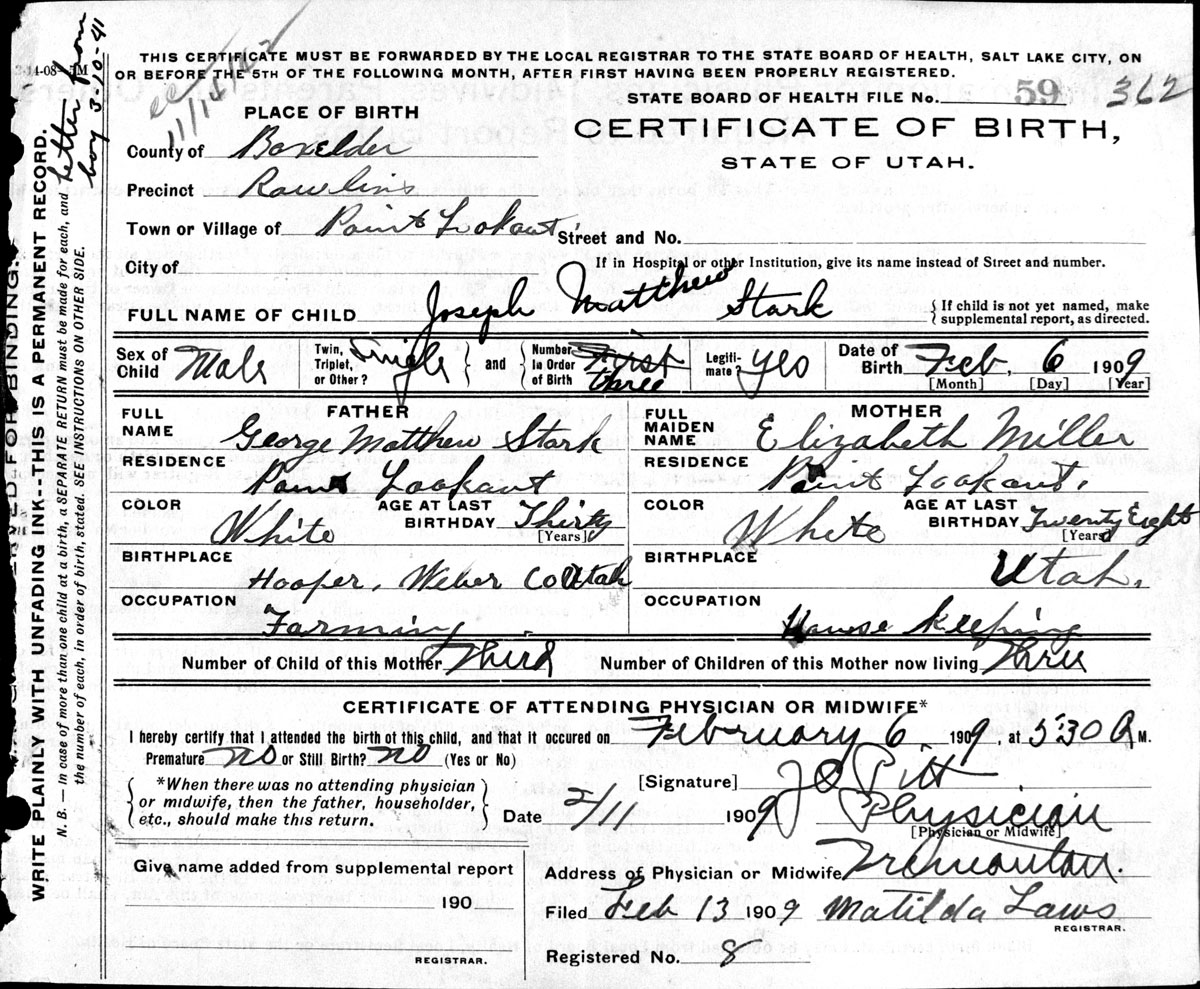 THIS CERTIFICATE MUST BE FORWARDED BY THE LOCAL REGISTRAR TO THE STATE BOARD OF HEALTH, SALT LAKE CITY, ON
OR BEFORE THE 5TH OF THE FOLLOWING MONTH, AFTER FIRST HAVING BEEN PROPERLY REGISTERED.
STATE BOARD OF HEALTH FILE No. 59 362
PLACE OF BIRTH
CERTIFICATE OF BIRTH,
STATE OF UTAH.
County of Boxelder
Precinct Rawlins
Town or Village of Point Lookout Street and No.
City of If in Hospital or other Institution, give its name instead of Street and number.
FULL NAME OF CHILD Joseph Matthew Stark { If child is not yet named, make
supplemental report, as directed.
Sex of Child Male Twin, Triplet, or Other? Single } and { Number in Order of Birth First three Legiti- mate? yes Date of Birth Feb. 6 1909
[Month] [Day] [Year]
FATHER
FULL NAME George Matthew Stark
RESIDENCE Point Lookout
COLOR White AGE AT LAST BIRTHDAY Thirty
[Years]
BIRTHPLACE Hooper, Weber Co Utah
OCCUPATION Farming
MOTHER
FULL MAIDEN NAME Elizabeth Miller
RESIDENCE Point Lookout,
COLOR White AGE AT LAST BIRTHDAY Twenty Eight
[Years]
BIRTHPLACE Utah.
OCCUPATION House Keeping
Number of Child of this Mother Third Number of Children of this Mother now living Three
CERTIFICATE OF ATTENDING PHYSICIAN OR MIDWIFE*
I hereby certify that I attended the birth of this child, and that it occured on February 6, 1909, at 530 A M.
Premature No or Still Birth? No (Yes or No)
*When there was no attending physician
or midwife, then the father, householder,
etc., should make this return.
[Signature] J O Pitt
Date 2/11 1909 Physician
[Physician or Midwife]
Give name added from supplemental report
190
REGISTRAR.
Address of Physician or Midwife Tremonton.
Filed Feb 13 1909 Matilda Laws
REGISTRAR.
Registered No. 8
WRITE PLAINLY WITH UNFADING INK--THIS IS A PERMANENT RECORD.
N. B. — In case of more than one child at a birth, a SEPARATE RETURN must be made for each, and
the number of each, in order of birth, stated. SEE INSTRUCTIONS ON OTHER SIDE.
letter from
boy 3-10-41